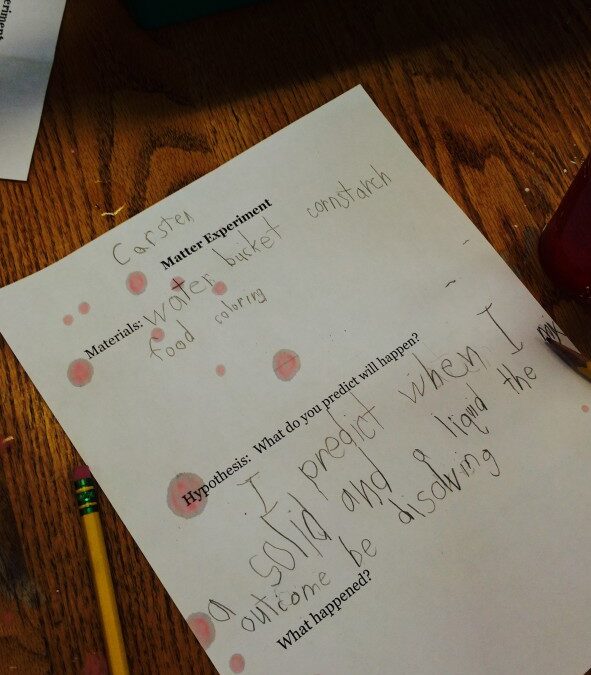 eriment
Carsten
Matter Experiment
Materials: water bucket cornstarch
food coloring
Hypothesis: What do you predict will happen?
I predict when I
a solid and a liquid the
outcome be disolving
What happened?